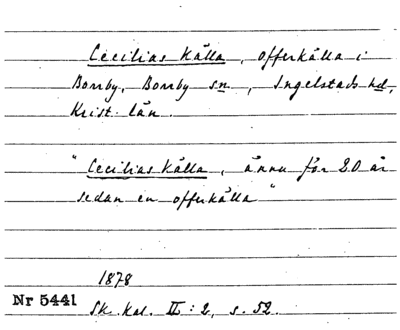 Cecilias Källa, offerkälla i
Borrby, Borrby sn, Ingelstads hd,
Krist. län.
"Cecilias Källa, ännu för 20 år
sedan en offerkälla"
1878
Nr 5441
Sk. Kal. II:2, s. 52.